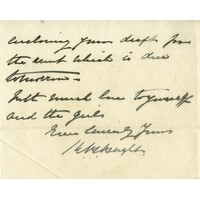 enclosing yours draft for
the rent which is due
tomorrow.
With much love to yourself
and the girls
Ever sincerely Yours